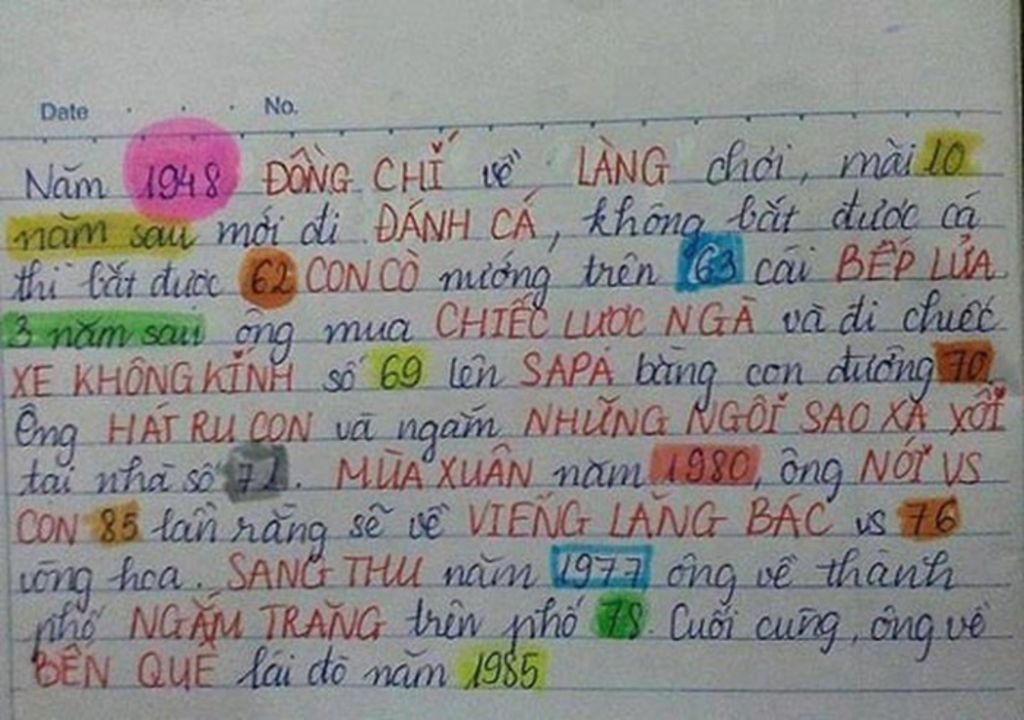 Date No.
Năm 1948 ĐỒNG CHÍ về LÀNG chơi, mãi 10
năm sau mới đi ĐÁNH CÁ, không bắt được cá
thì bắt được 62 CON CÒ nướng trên 63 cái BẾP LỬA
3 năm sau ông mua CHIẾC LƯỢC NGÀ và đi chiếc
XE KHÔNG KÍNH số 69 lên SAPA bằng con đường 70.
Ông HÁT RU CON và ngắm NHỮNG NGÔI SAO XA XÔI
tại nhà số 71. MÙA XUÂN năm 1980, ông NÓI VS
CON 85 lần rằng sẽ về VIẾNG LĂNG BÁC vs 76
vòng hoa. SANG THU năm 1977 ông về thành
phố NGẮM TRĂNG trên phố 78. Cuối cùng, ông về
BẾN QUÊ lái đò năm 1985